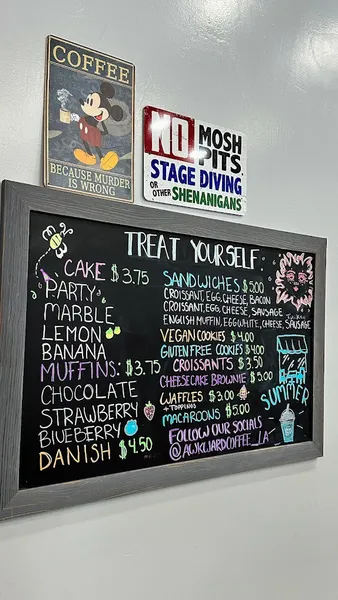 COFFEE
BECAUSE MURDER
IS WRONG
NO MOSH
PITS
STAGE DIVING
OR OTHER SHENANIGANS
TREAT YOURSELF
CAKE $3.75
PARTY
MARBLE
LEMON
BANANA
MUFFINS: $3.75
CHOCOLATE
STRAWBERRY
BLUEBERRY
DANISH $4.50
SANDWICHES $5.00
CROISSANT, EGG, CHEESE, BACON
CROISSANT, EGG, CHEESE, SAUSAGE
ENGLISH MUFFIN, EGGWHITE, CHEESE, SAUSAGE
VEGAN COOKIES $4.00
GLUTEN FREE COOKIES $4.00
CROISSANTS $3.50
CHEESECAKE BROWNIE $5.00
WAFFLES $3.00
+ TOPPINGS
MACAROONS $5.00
FOLLOW OUR SOCIALS
@AWKWARDCOFFEE_LA
SUMMER